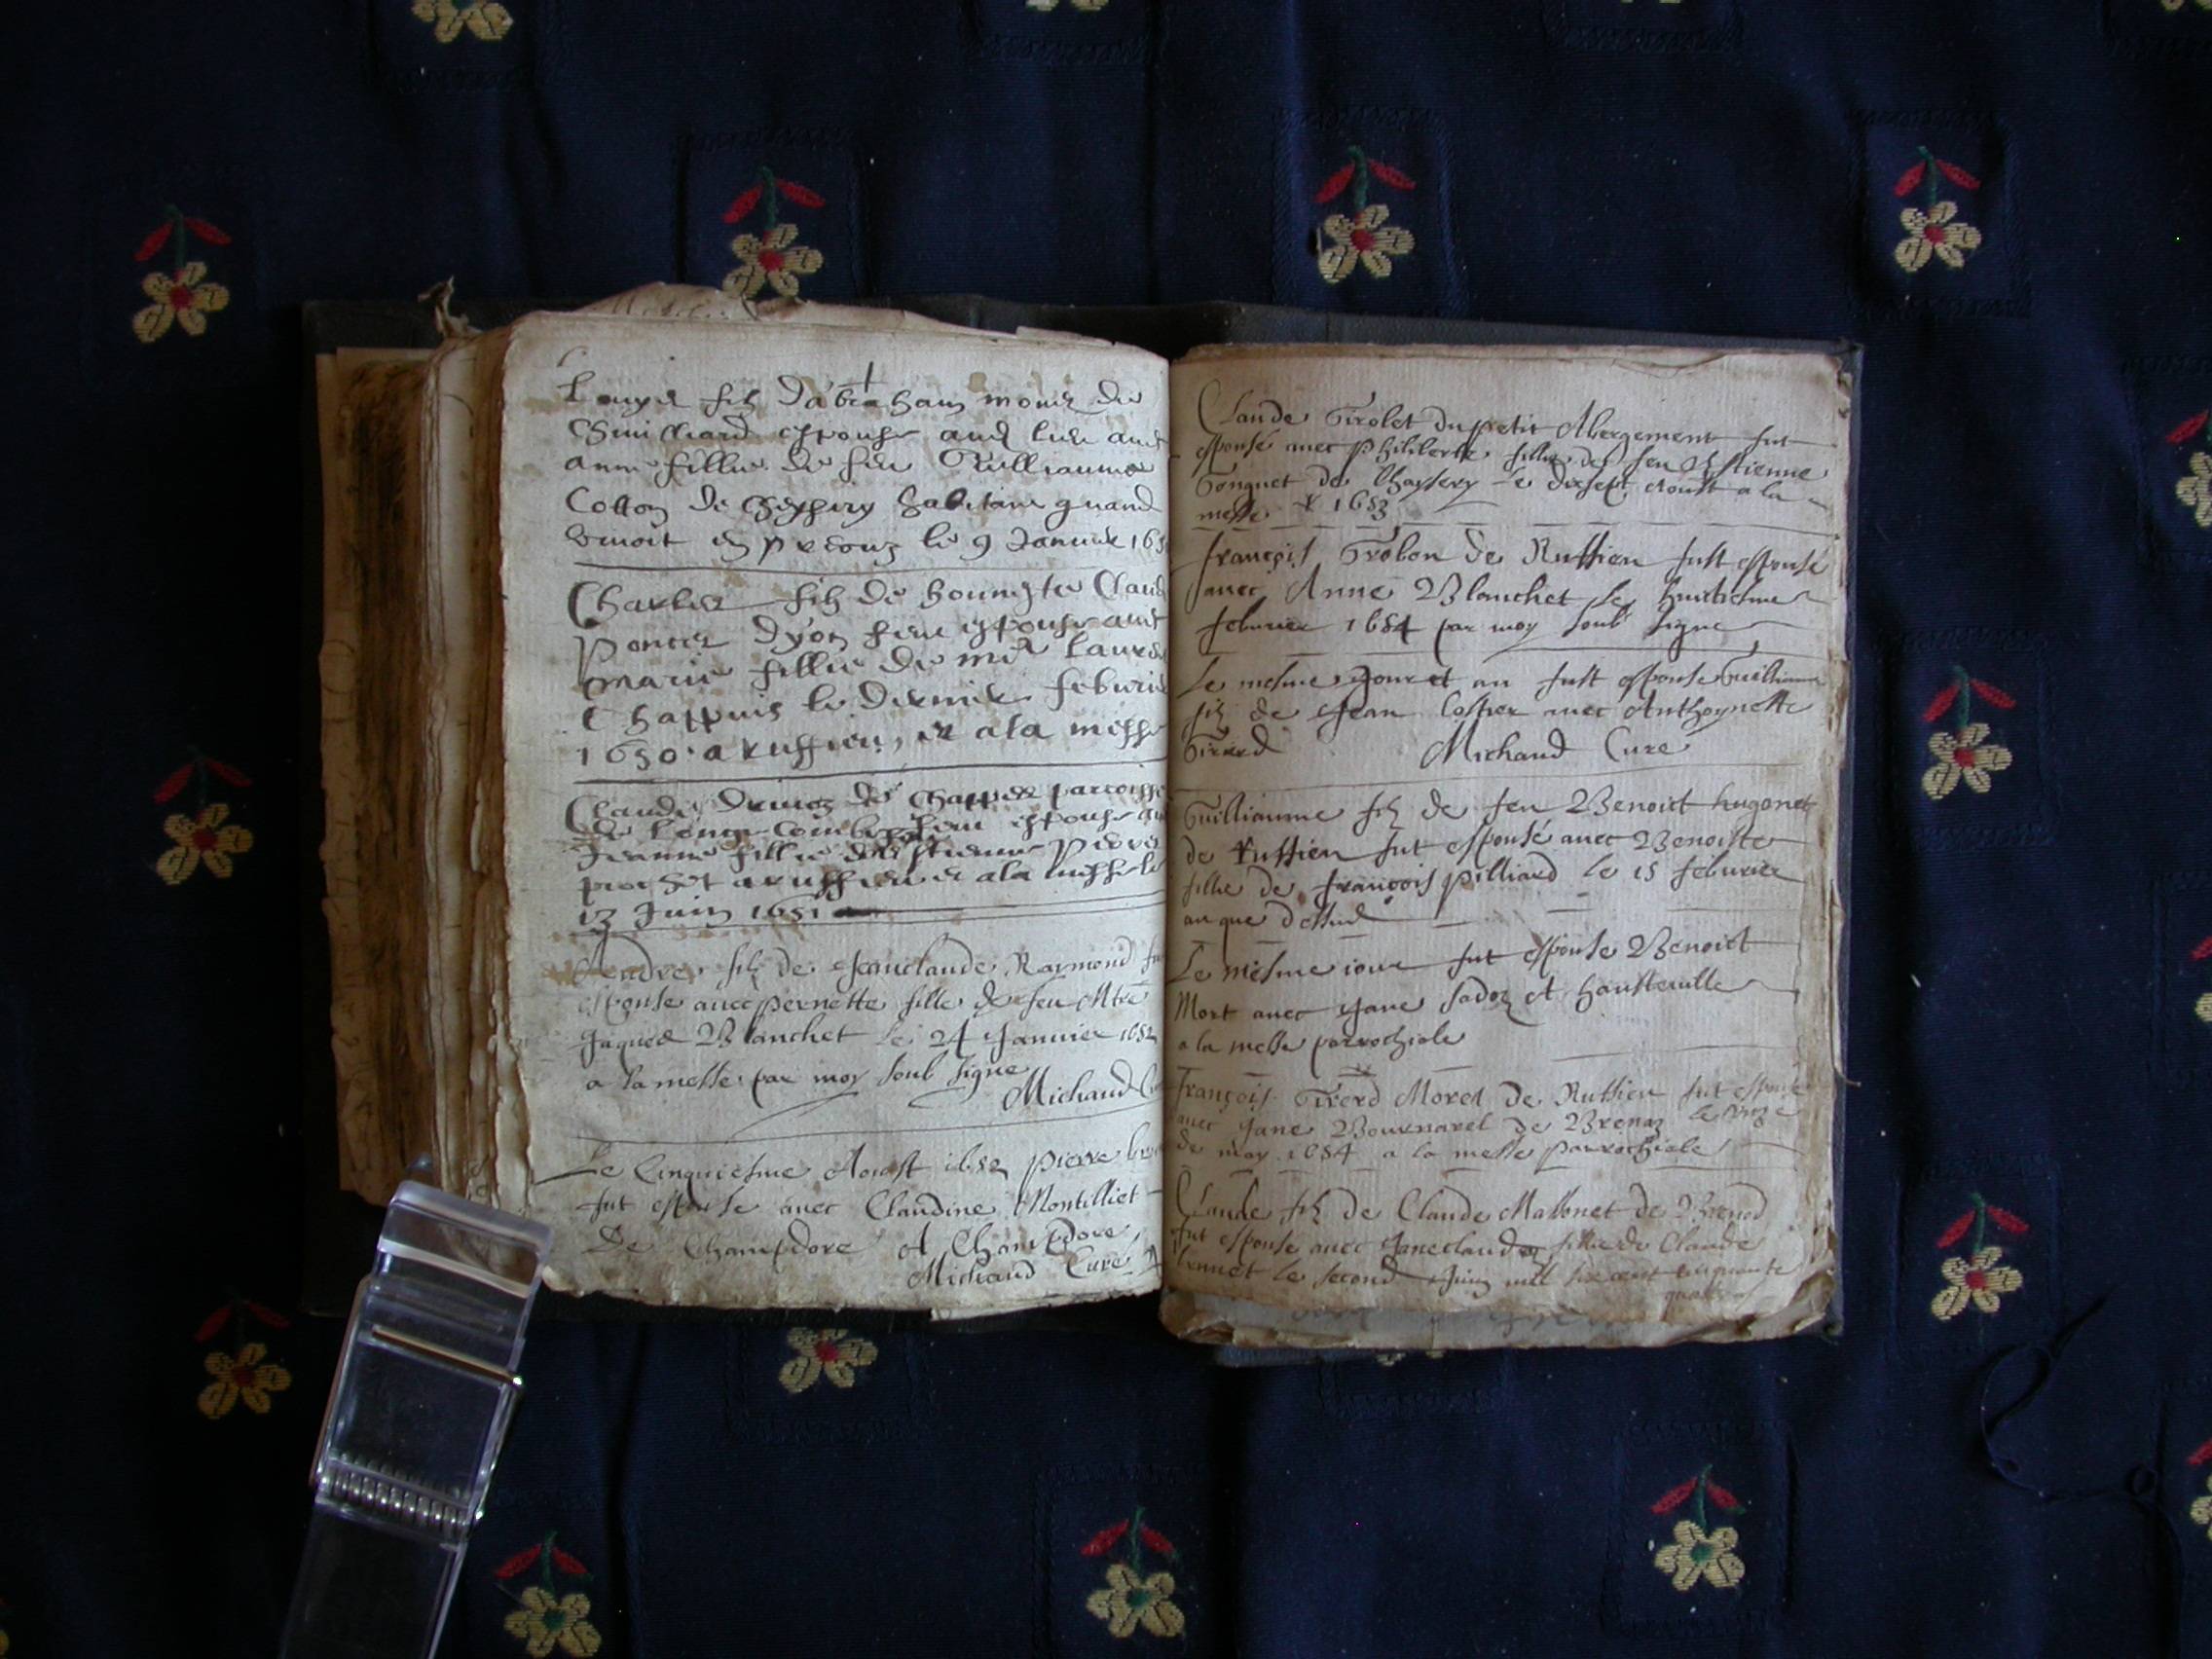 Louys filz d'abraham monet de
Chuilliard espouse aud lieu auec
anne fillie de feu Guilliaume
Collon de habitant quand
viuoit en le 9 Januier 165
Charles filz de honneste Claude
Poncet Dyon feu espouse auec
Marie fillie de me Laure
Chappuis le dernier feburie
1650 a ruffieu, et a la messe
Claude de parroisse
de Longecombe feu espouse au
Jeanne fillie destienne Pierre
a ruffieu et a la messe le
13 Juin 1651
Andre filz de Jeanclaude Raymond fu
esponse auec pernette fille de feu Mtre
Jaques Blanchet le 24 Januier 1652
a la messe par moy soub signe
Michaud Cu
Le Cinquiesme Aoust 1652 pierre
fut esponse auec Claudine Montilliet
De Champdore A Champdore
Michaud Cure
Claude Girolet du petit Abergement fut
esponsé auec philiberte fillie de feu Estienne
Gonguet de Chassery le disept Aoust a la
messe 1653
françois Grobon de Ruffieu fust esponse
auec Anne Blanchet le huictiesme
feburier 1654 par moy soub signe
Le mesme jour et an fust esponse Guilliaume
filz de Jean Costier auec Anthoynette
Girerd Michaud Cure
Guilliaume filz de feu Benoict hugonet
de Ruffieu fut esponsé auec Benoiste
fillie de françois pilliard le 15 feburier
an que dessus
Le mesme iour fut esponse Benoict
Mort auec Jane Sadoz et hauteuille
a la messe parrochiale
françois Girerd Moret de Ruffieu fut esponse
auec Jane Bournarel de Brenaz le onze
de may 1654 a la messe parrochiale
Claude filz de Claude Malbonet de Brenod
fut esponse auec Janeclauda fillie de Claude
brunet le second Juin mil six cent cinquante
quatre